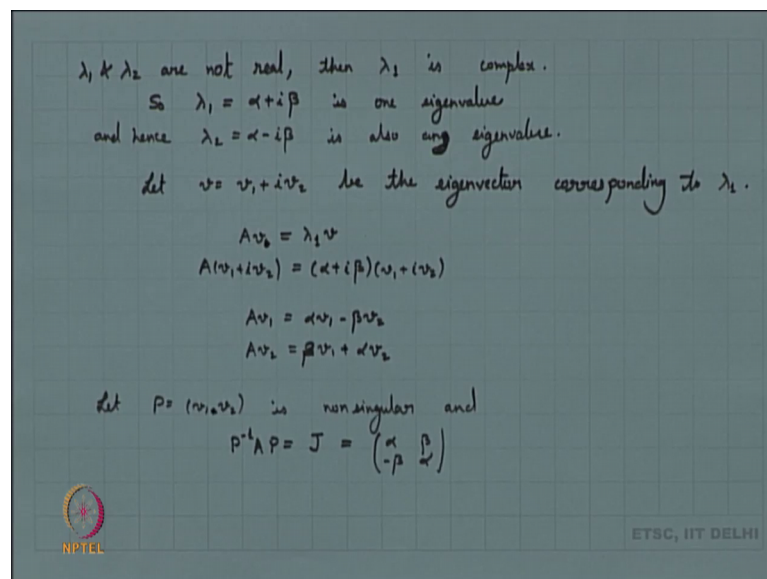 λ₁ & λ₂ are not real, then λ₁ is complex.
So λ₁ = α+iβ is one eigenvalue
and hence λ₂ = α-iβ is also eigenvalue.
Let v = v₁+iv₂ be the eigenvector corresponding to λ₁.
Av = λ₁v
A(v₁+iv₂) = (α+iβ)(v₁+iv₂)
Av₁ = αv₁ - βv₂
Av₂ = βv₁ + αv₂
Let P = (v₁, v₂) is nonsingular and
P⁻¹AP = J = (α β
-β α)
NPTEL
ETSC, IIT DELHI